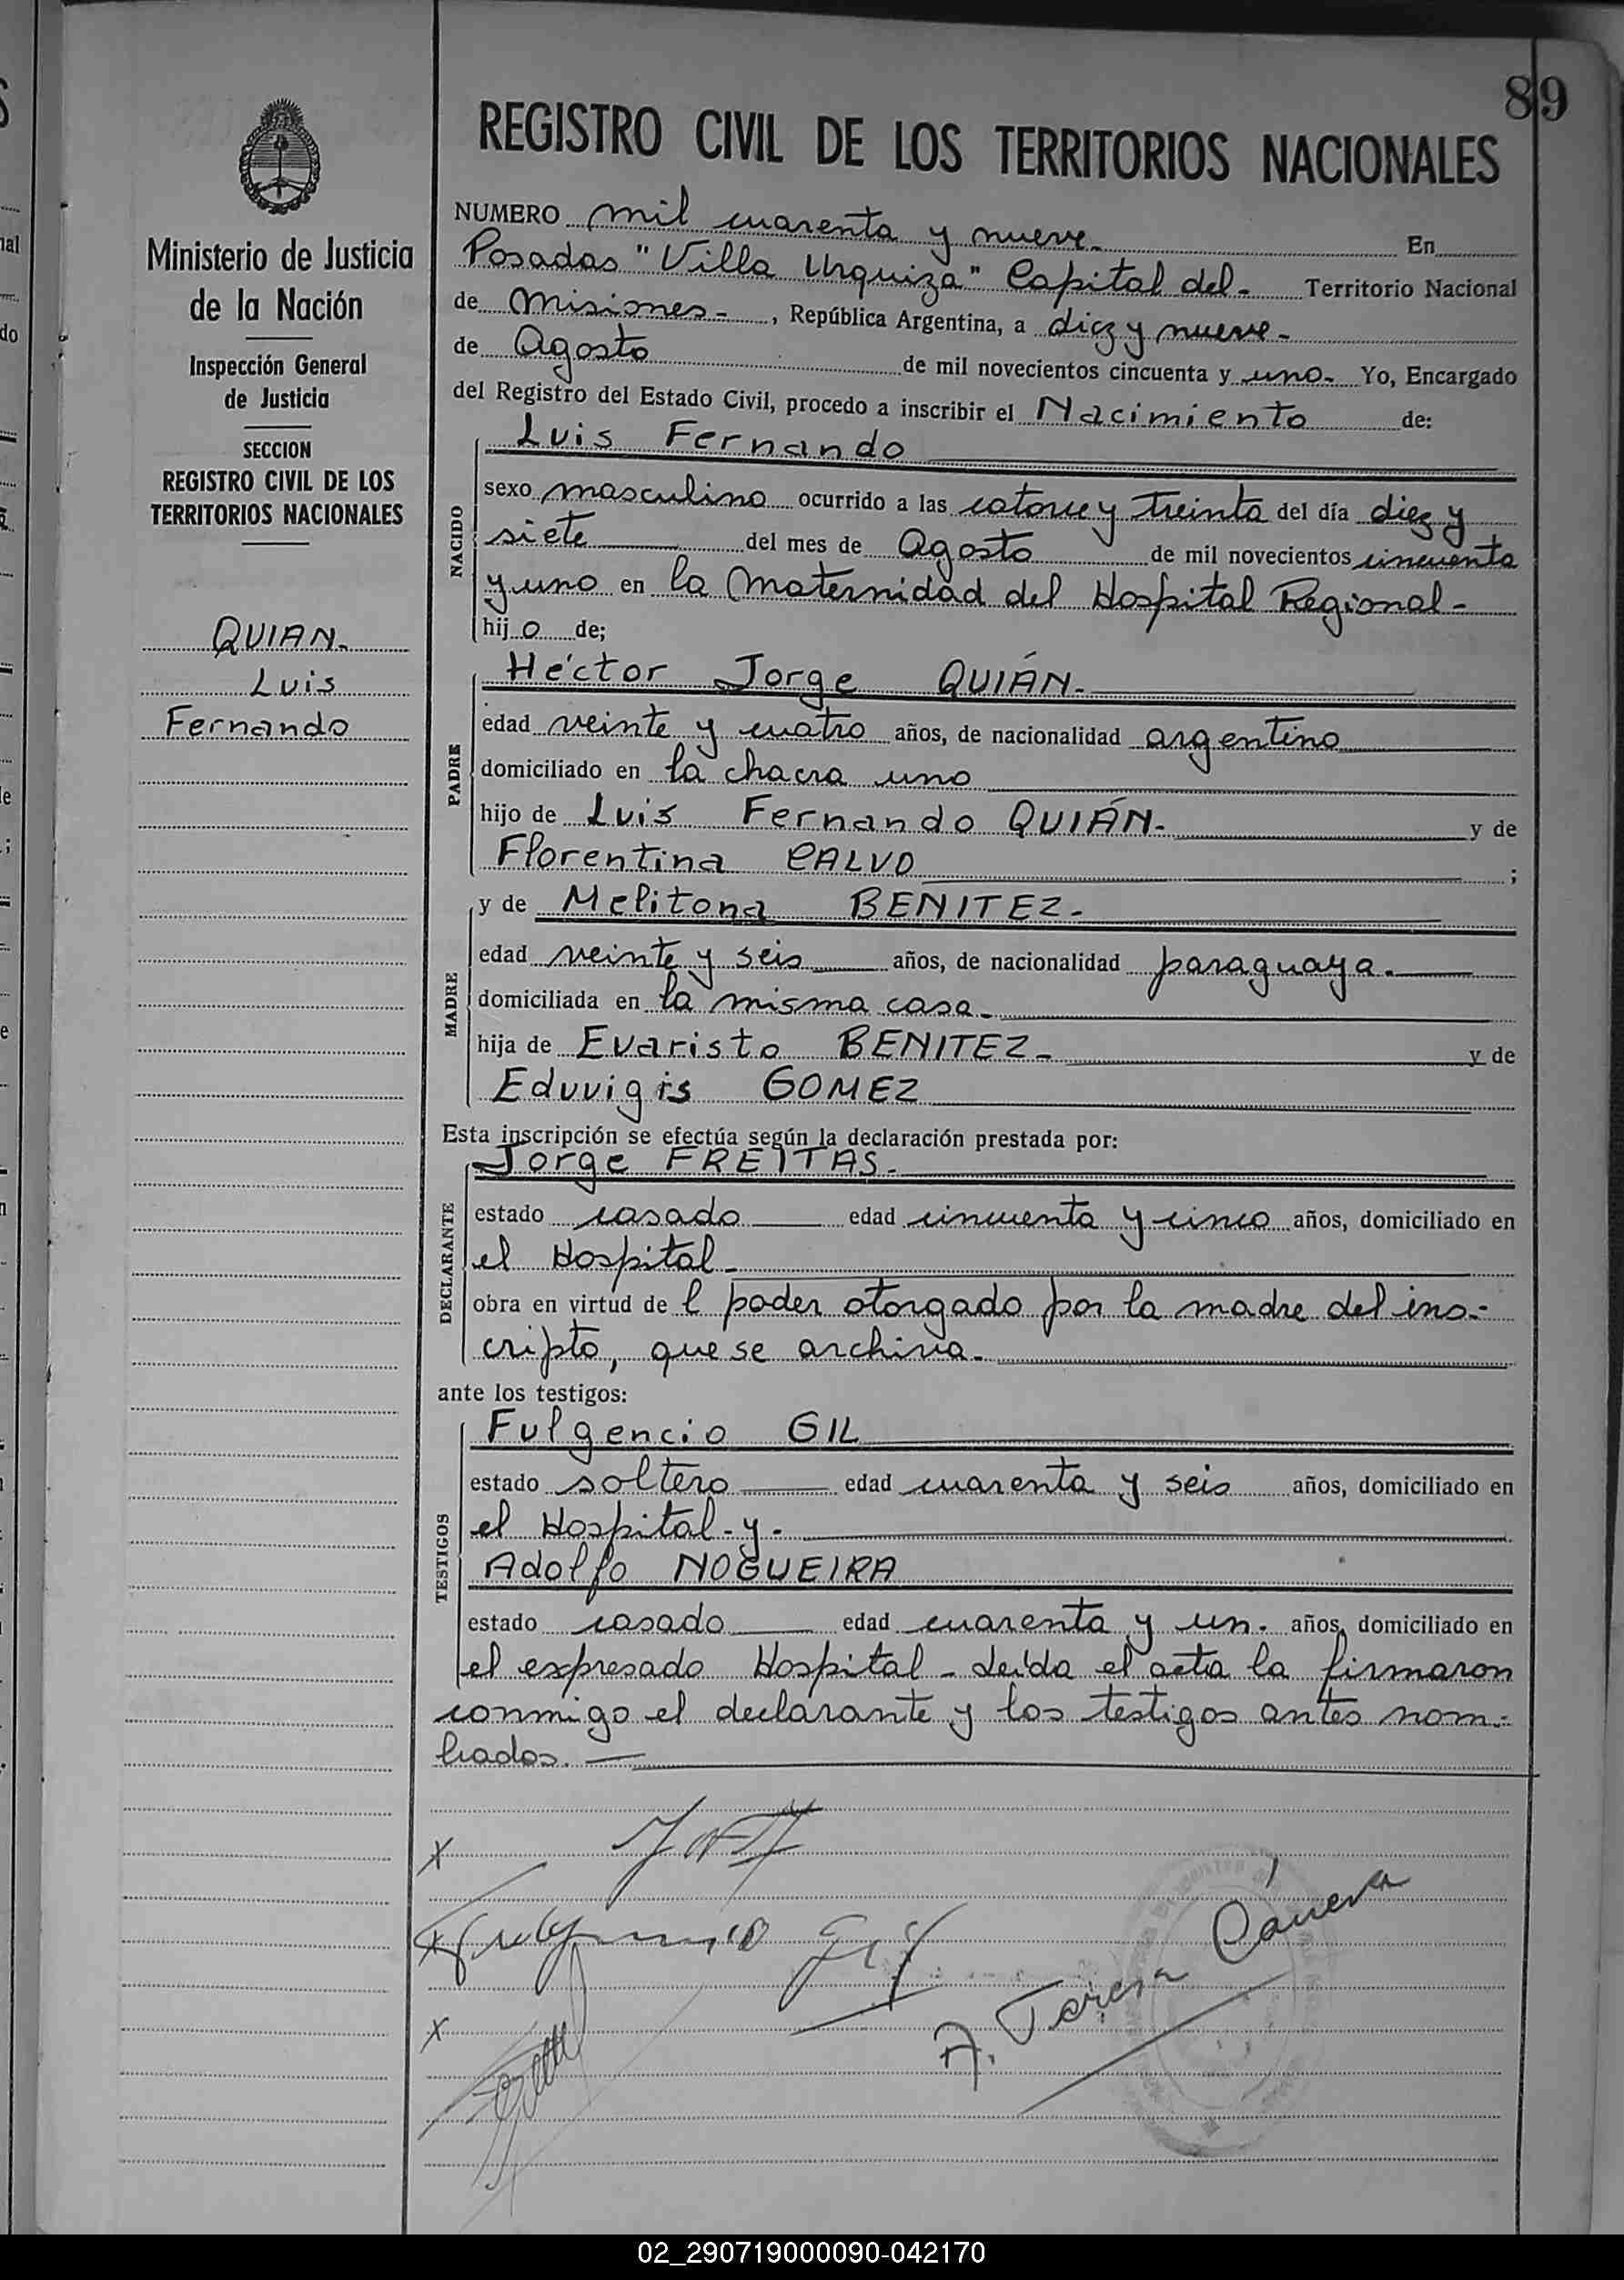 89
REGISTRO CIVIL DE LOS TERRITORIOS NACIONALES
Ministerio de Justicia
de la Nación
Inspección General
de Justicia
SECCION
REGISTRO CIVIL DE LOS
TERRITORIOS NACIONALES
QUIAN.
Luis
Fernando
NUMERO mil cuarenta y nueve- En
Posadas "Villa Urquiza" Capital del- Territorio Nacional
de Misiones-, República Argentina, a diez y nueve-
de Agosto de mil novecientos cincuenta y uno- Yo, Encargado
del Registro del Estado Civil, procedo a inscribir el Nacimiento de:
Luis Fernando
NACIDO
sexo masculino ocurrido a las catorce y treinta del día diez y
siete del mes de Agosto de mil novecientos cincuenta
y uno en la Maternidad del Hospital Regional-
hijo de;
Héctor Jorge QUIÁN-
PADRE
edad veinte y cuatro años, de nacionalidad argentino
domiciliado en la chacra uno
hijo de Luis Fernando QUIÁN- y de
Florentina CALVO ;
y de Melitona BENITEZ-
MADRE
edad veinte y seis años, de nacionalidad paraguaya.
domiciliada en la misma casa-
hija de Evaristo BENITEZ- y de
Eduvigis GOMEZ
Esta inscripción se efectúa según la declaración prestada por:
Jorge FREITAS-
DECLARANTE
estado casado edad cincuenta y cinco años, domiciliado en
el Hospital-
obra en virtud de l poder otorgado por la madre del ins-
cripto, que se archiva-
ante los testigos:
Fulgencio GIL
TESTIGOS
estado soltero edad cuarenta y seis años, domiciliado en
el Hospital-y-
Adolfo NOGUEIRA
estado casado edad cuarenta y un- años, domiciliado en
el expresado Hospital- Leída el acta la firmaron
conmigo el declarante y los testigos antes nom-
brados.
x
x Fulgencio Gil
x
A. Teresa Cánera
02_290719000090-042170